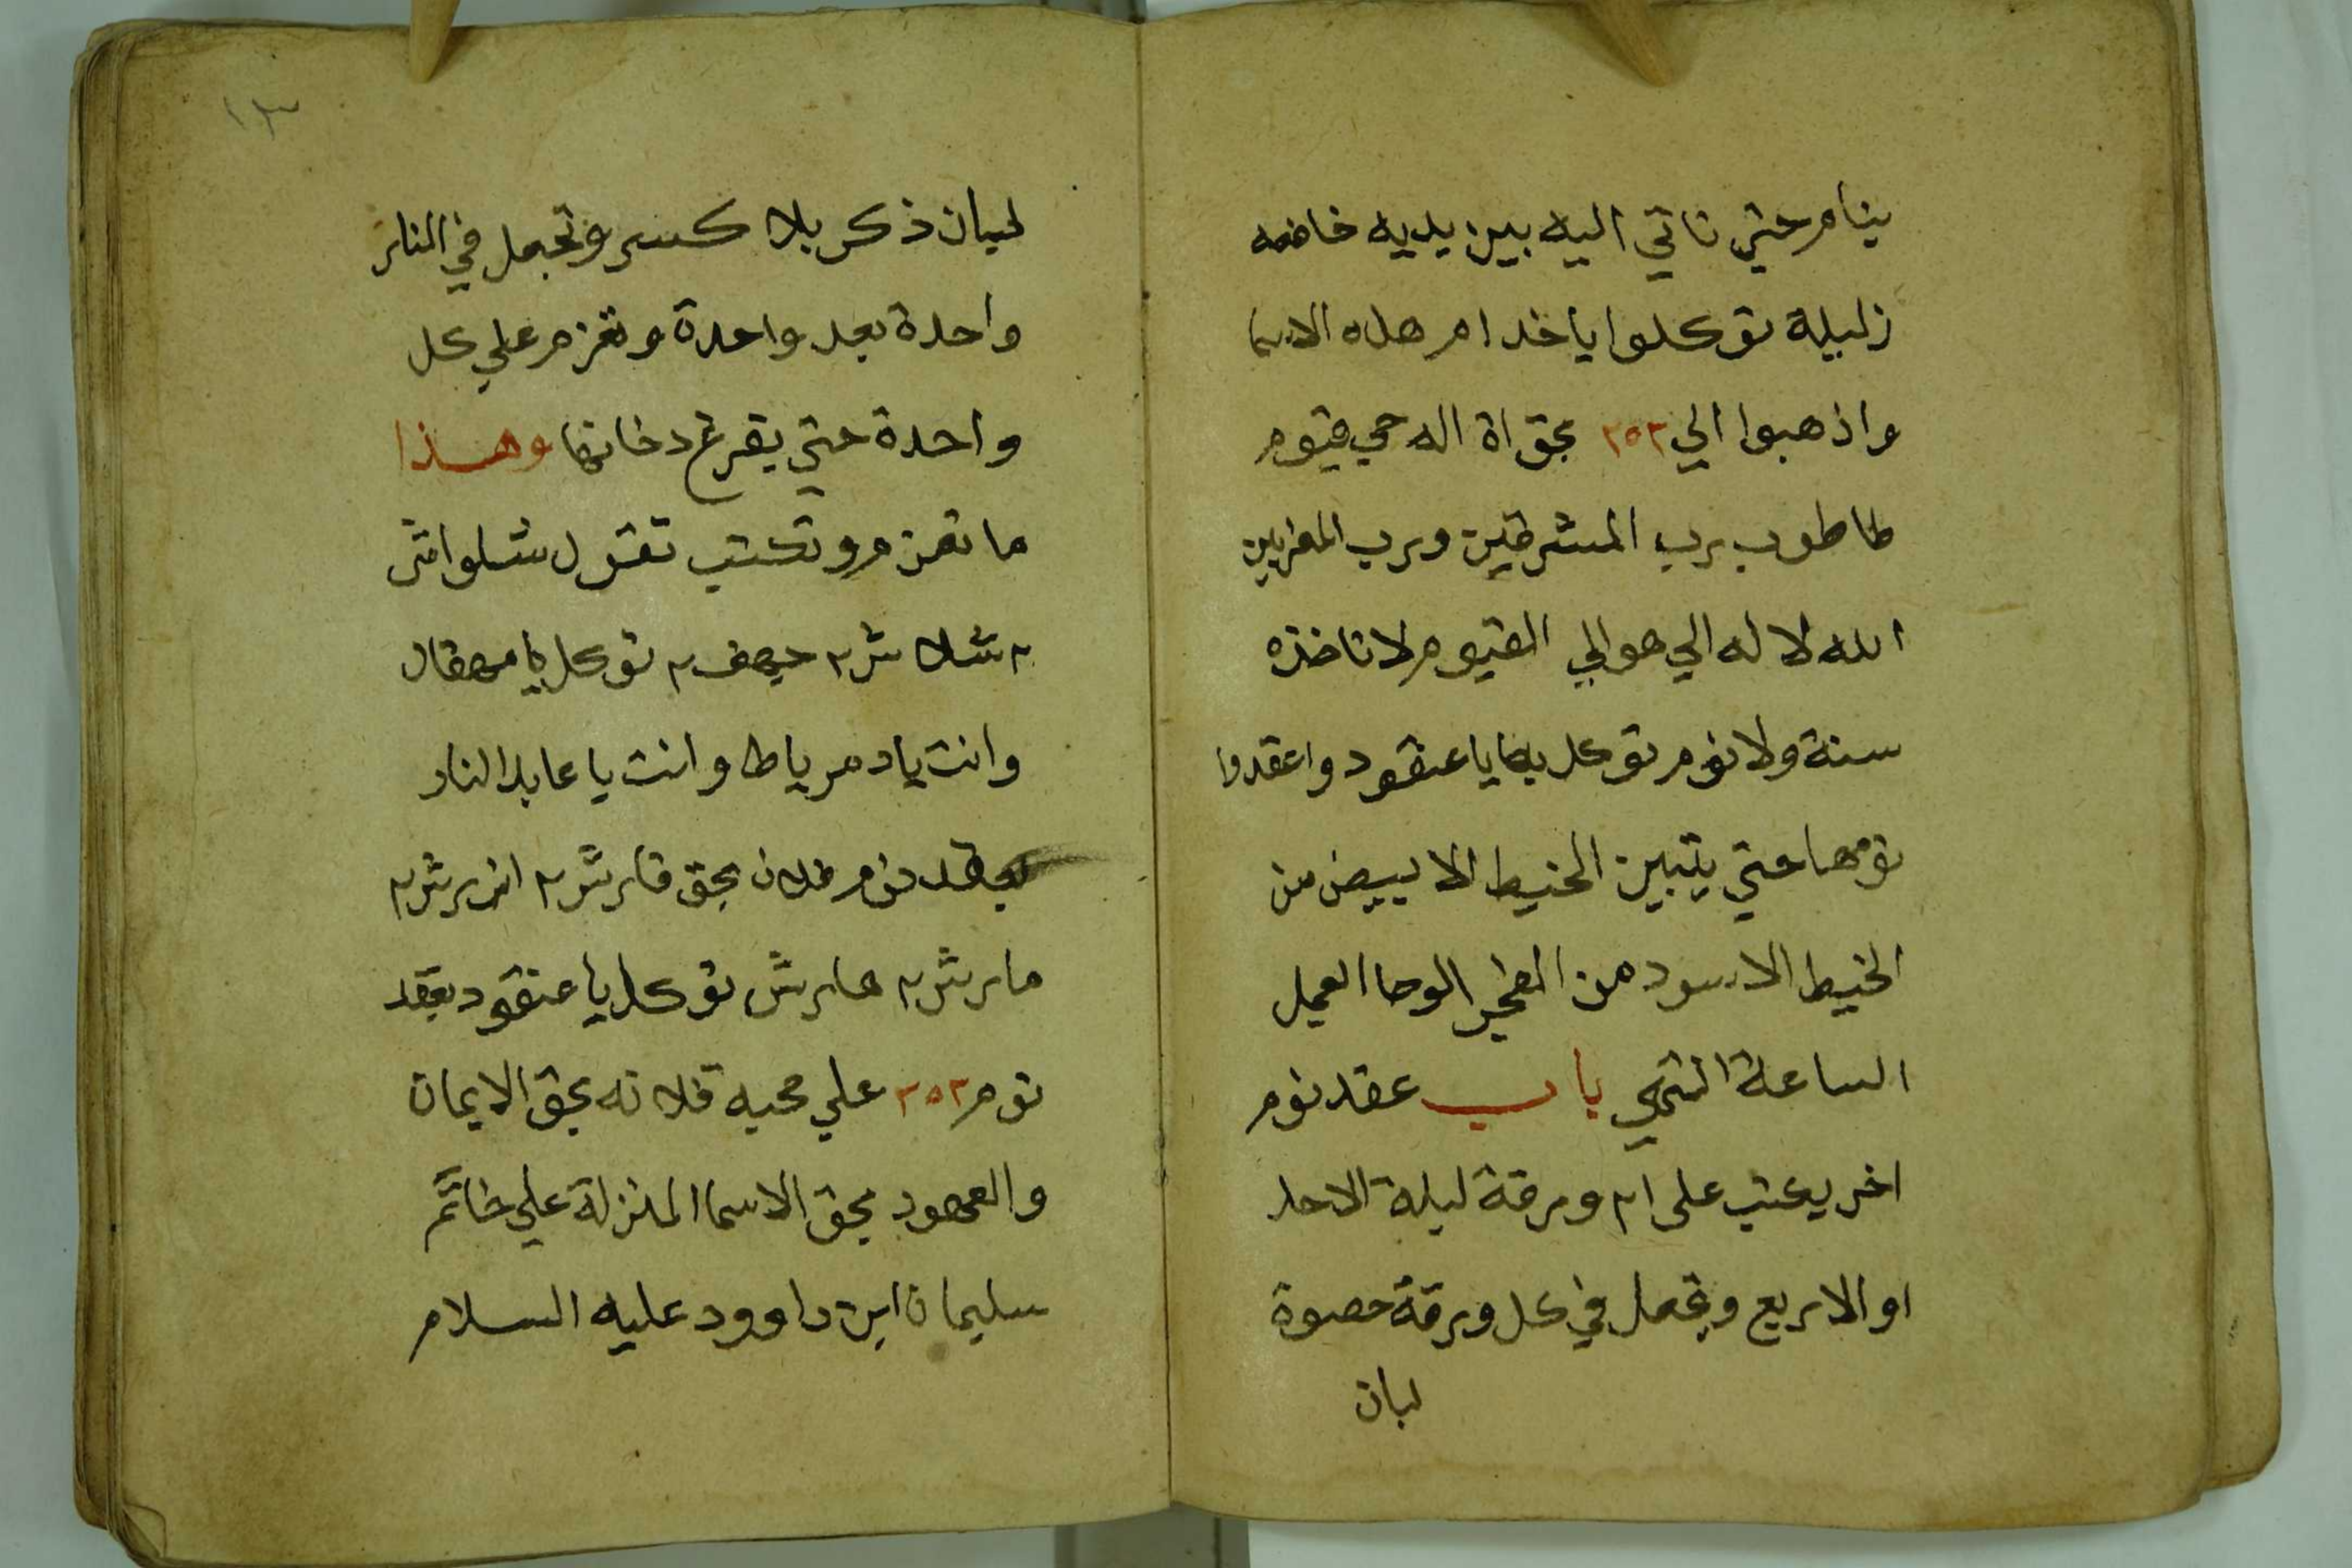 ينام حتي تاتي اليه بين يديه خاضعه
زليلة توكلوا يا خدام هذه الاسما
واذهبوا الي ٢٥٢ بحق اة اله حي قيوم
طاطوب برب المشرقين ورب المغربين
الله لا له الي هوالي القيوم لا تاخذه
سنة ولا نوم توكل بها يا عنقود واعقدوا
نومها حتي يتبين الخيط الابيض من
الخيط الاسود من الفجر الوحا العجل
الساعة انتهي باب عقد نوم
اخر يكتب على ورقة ليلة الاحد
او الاربع وتجعل في كل ورقة حصوة
لبان
لبان ذكر بلا كسر وتجعل في النار
واحدة بعد واحدة وتعزم علي كل
واحدة حتي يفرغ دخانها وهذا
ما تعزم وتكتب تقول
توكل يا
وانت يا دمرياط وانت يا عابد النار
بعقد نوم فلان بحق قارش ٢ انرش ٢
مارش ٢ هارش توكل يا عنقود بعقد
نوم ٢٥٢ علي محبة فلانه بحق الايمان
والعهود بحق الاسما المنزلة علي خاتم
سليمان ابن داوود عليه السلام